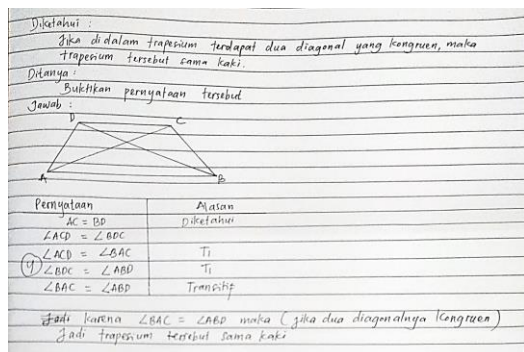 Diketahui :
Jika didalam trapesium terdapat dua diagonal yang kongruen, maka
trapesium tersebut sama kaki.
Ditanya :
Buktikan pernyataan tersebut
Jawab :
D C
A B
Pernyataan Alasan
AC = BD Diketahui
∠ACD = ∠BDC
∠ACD = ∠BAC Ti
4) ∠BDC = ∠ABD Ti
∠BAC = ∠ABD Transitif
Jadi karena ∠BAC = ∠ABD maka (jika dua diagonalnya kongruen)
Jadi trapesium tersebut sama kaki